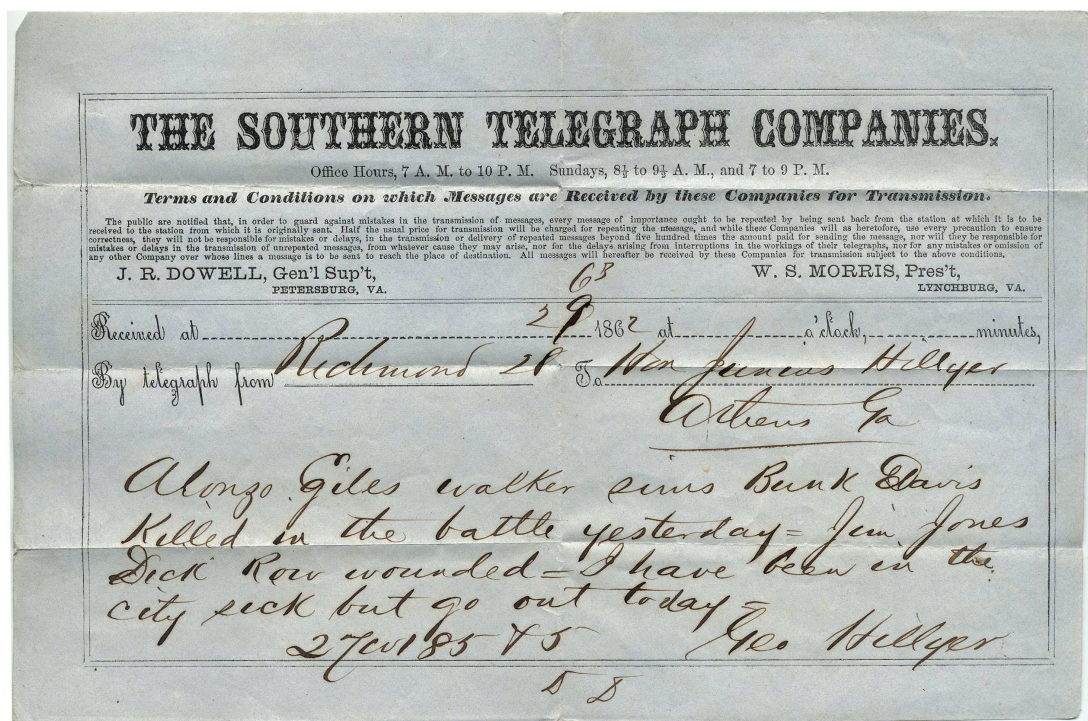 THE SOUTHERN TELEGRAPH COMPANIES.
Office Hours, 7 A. M. to 10 P. M. Sundays, 8½ to 9½ A. M., and 7 to 9 P. M.
Terms and Conditions on which Messages are Received by these Companies for Transmission.
The public are notified that, in order to guard against mistakes in the transmission of messages, every message of importance ought to be repeated by being sent back from the station at which it is to be
received to the station from which it is originally sent. Half the usual price for transmission will be charged for repeating the message, and while these Companies will as heretofore, use every precaution to ensure
correctness, they will not be responsible for mistakes or delays, in the transmission or delivery of repeated messages beyond five hundred times the amount paid for sending the message, nor will they be responsible for
mistakes or delays in the transmission of unrepeated messages, from whatever cause they may arise, nor for the delays arising from interruptions in the workings of their telegraphs, nor for any mistakes or omission of
any other Company over whose lines a message is to be sent to reach the place of destination. All messages will hereafter be received by these Companies for transmission subject to the above conditions.
J. R. DOWELL, Gen'l Sup't, W. S. MORRIS, Pres't,
PETERSBURG, VA. LYNCHBURG, VA.
63
Received at 29 1862 at o'clock, minutes,
By telegraph from Richmond 28 To Hon Junius Hillyer
Athens Ga
Alonzo Giles walker sims Bunk Davis
Killed in the battle yesterday = Jim Jones
Dick Row wounded = I have been in the
city sick but go out today =
Geo Hillyer